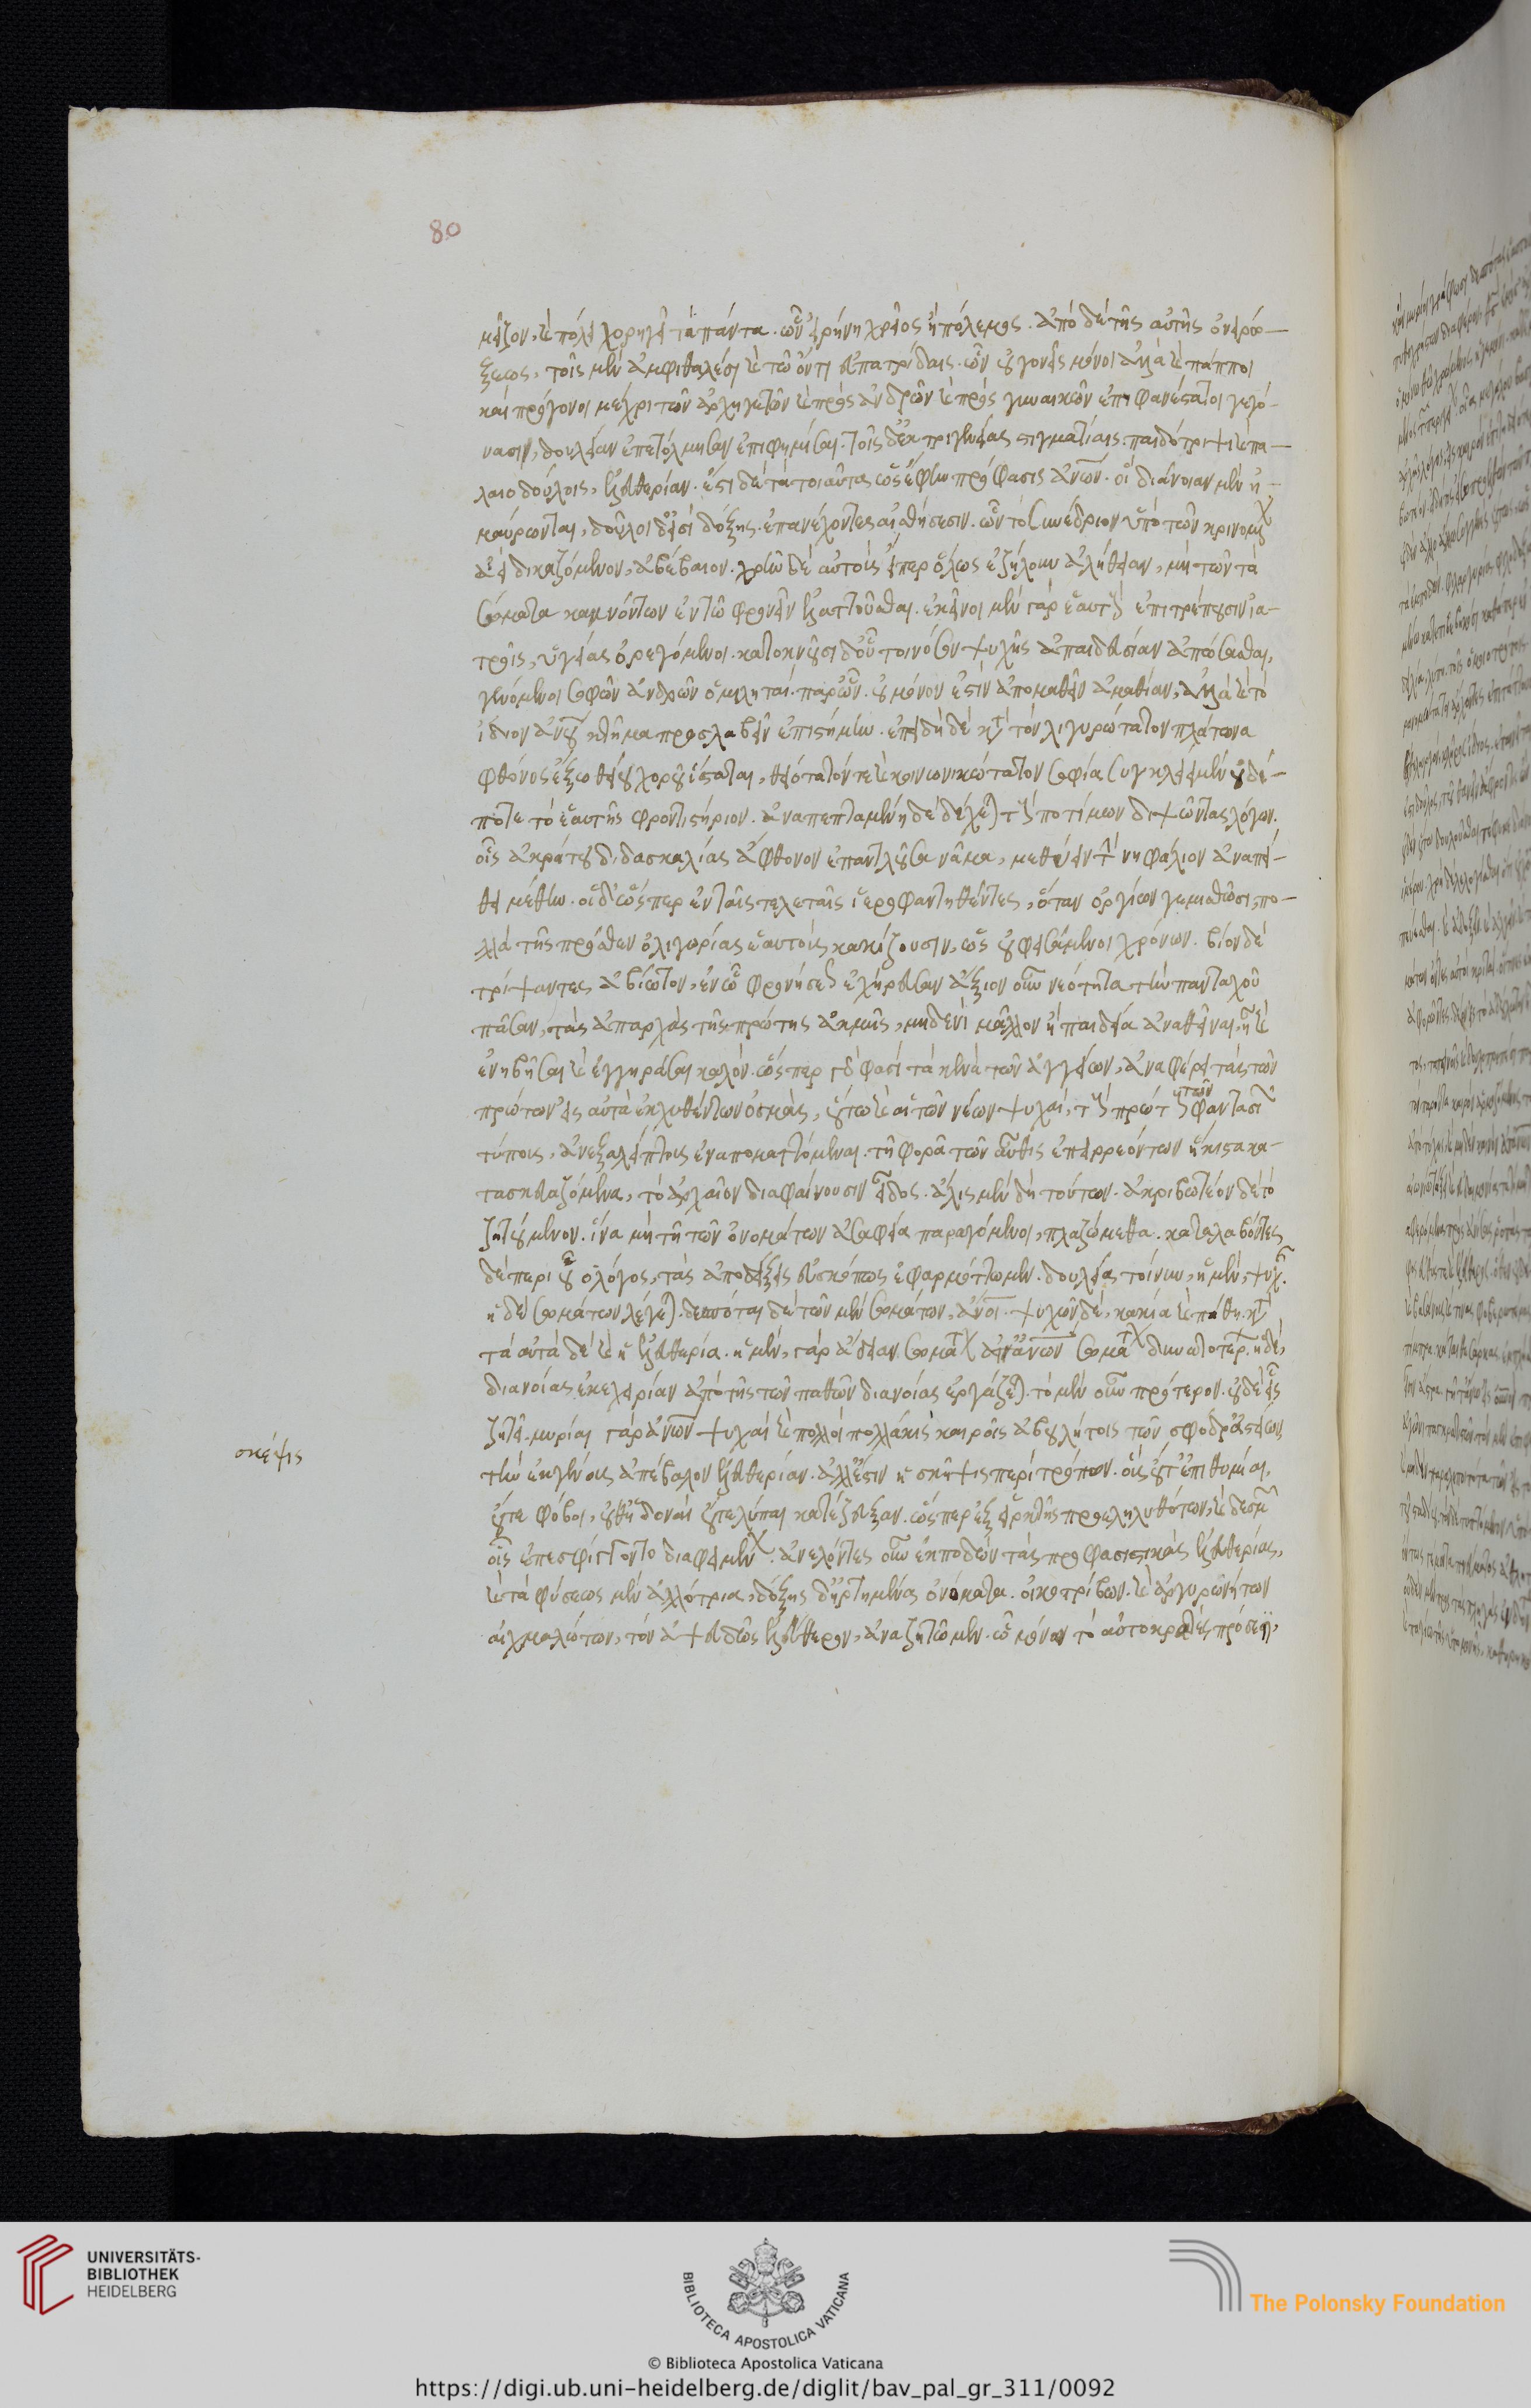 μεῖζον, καὶ πόλει χορηγεῖ τὰ πάντα. ὧν εἰρήνη χρεῖος ἢ πόλεμος. ἀπὸ δὲ τῆς αὐτῆς ὀνειρώ-
ξεως, τοῖς μὲν ἀμφιθαλέσι καὶ τῶ ὄντι εὐπατρίδαις. ὧν οὐ γονεῖς μόνοι ἀλλὰ καὶ πάπποι
καὶ πρόγονοι μέχρι τῶν ἀρχηγετῶν καὶ πρὸς ἀνδρῶν καὶ πρὸς γυναικῶν ἐπιφανέστατοι γεγό-
νασιν, δουλείαν ἐπετόλμησαν ἐπιφημίσαι. τοῖς δ' ἐκ στιγματίαις παιδότριψι καὶ πα-
λαιοδούλοις, ἐλευθερίαν. ἔστι δὲ τὰ τοιαῦτα ὡς ἔφην πρόφασις ἀνων. οἳ διάνοιαν μὲν ἠ-
μαύρωνται, δοῦλοι δ' εἰσὶ δόξης. ἐπανέχοντες αἰσθήσεσιν. ὧν τὸ συνέδριον ὑπὸ τῶν κρινομένων
ἀεὶ δικαζόμενον, ἀβέβαιον. χρῆν δὲ αὐτοὺς εἴπερ ὅλως ἐζήλουν ἀλήθειαν, μὴ τῶν τὰ
σώματα καμνόντων ἐν τῶ φρονεῖν ἐλαττοῦσθαι. ἐκεῖνοι μὲν γὰρ ἑαυτοὺς ἐπιτρέπουσιν ἰα-
τροῖς, ὑγείας ὀρεγόμενοι. κατοκνοῦσι δ' οὗτοι νόσον ψυχῆς ἀπαιδευσίαν ἀπώσασθαι,
γενόμενοι σοφῶν ἀνδρῶν ὁμιληταί. παρ' ὧν οὐ μόνον ἐστὶν ἀπομαθεῖν ἀμαθίαν, ἀλλὰ καὶ τὸ
ἴδιον ἀνου κτῆμα προσλαβεῖν ἐπιστήμην. ἐπειδὴ δὲ κατὰ τὸν λιγυρώτατον πλάτωνα
φθόνος ἔξω θείου χοροῦ ἵσταται, θειότατόν τε καὶ κοινωνικώτατον σοφία συγκλείει μὲν οὐδέ-
ποτε τὸ ἑαυτῆς φροντιστήριον. ἀναπεπταμένη δὲ δέχεται τοὺς ποτίμων διψῶντας λόγων.
οἷς ἀκράτου διδασκαλίας ἄφθονον ἐπαντλοῦσα νᾶμα, μεθύειν τὴν νηφάλιον ἀναπεί-
θει μέθην. οἱ δ' ὥσπερ ἐν ταῖς τελεταῖς ἱεροφαντηθέντες, ὅταν ὀργίων γεμισθῶσι, πο-
λλὰ τῆς πρόσθεν ὀλιγωρίας ἑαυτοὺς κακίζουσιν, ὡς οὐ φεισάμενοι χρόνων. βίον δὲ
τρίψαντες ἀβίωτον, ἐν ᾧ φρονήσεως ἐχήρευσαν ἄξιον οὖν νεότητα τὴν πανταχοῦ
πᾶσαν, τὰς ἀπαρχὰς τῆς πρώτης ἀκμῆς, μηδενὶ μᾶλλον ἢ παιδεία ἀναθεῖναι, ᾗ καὶ
ἐνηβῆσαι καὶ ἐγγηρᾶσαι καλόν. ὥσπερ γὰρ φασὶ τὰ κενὰ τῶν ἀγγείων, ἀναφέρει τὰς τῶν
πρώτων εἰς αὐτὰ ἐκχυθέντων ὀσμὰς, οὕτω καὶ αἱ τῶν νέων ψυχαί, τοὺς πρώτους τῶν φαντασιῶν
τύπους, ἀνεξαλείπτους ἐναποματτόμεναι. τῆ φορᾶ τῶν αὖθις ἐπεισρεόντων ἥκιστα κα-
τασκευαζόμενα, τὸ ἀρχαῖον διαφαίνουσιν εἶδος. ἅλις μὲν δὴ τούτων. ἀκριβωτέον δὲ τὸ
ζητούμενον. ἵνα μὴ τῆ τῶν ὀνομάτων ἀσαφεία παραγόμενοι, πλαζώμεθα. καταλαβόντες
δὲ περὶ οὗ ὁ λόγος, τὰς ἀποδείξεις εὐσκόπως ἐφαρμόττωμεν. δουλείας τοίνυν, ἡ μὲν, ψυχῶν.
ἡ δὲ σωμάτων λέγεται. δεσπόται δὲ τῶν μὲν σωμάτων, ἄνοι. ψυχῶν δὲ, κακία καὶ πάθη. κατὰ
τὰ αὐτὰ δὲ καὶ ἡ ἐλευθερία. ἡ μὲν, γὰρ ἄδειαν σωμάτων ἀπ' ἀνων σωμάτων δυνατωτέρων. ἡ δὲ,
διανοίας ἐκεχειρίαν ἀπὸ τῆς τῶν παθῶν διανοίας ἐργάζεται. τὸ μὲν οὖν πρότερον. οὐδὲ εἷς
ζητεῖ. μυρίαι γὰρ ἀνων ψυχαὶ καὶ πολλοὶ πολλάκις καιροῖς ἀβουλήτοις τῶν σφόδρ' ἀστείων
τὴν ἐκ γενέσεως ἀπέβαλον ἐλευθερίαν. ἀλλ' ἔστιν ἡ σκέψις περὶ τρόπων. οὓς οὔτ' ἐπιθυμίαι,
οὔτε φόβοι, οὔθ' ἡδοναὶ οὔτε λύπαι κατέζευξαν. ὥσπερ ἐξ εἱρκτῆς προεληλυθότων, καὶ δεσμῶν
οἷς ἐπεσφίγγοντο διαφειμένων. ἀνελόντες οὖν ἐκποδὼν τὰς προφασιστικὰς ἐλευθερίας,
καὶ τὰ φύσεως μὲν ἀλλότρια, δόξης δ' ἠρτημένας ὀνόματα. οἰκοτρίβων. καὶ ἀργυρωνήτων
αἰχμαλώτων, τὸν ἀψευδῶς ἐλεύθερον, ἀναζητῶμεν. ᾧ μόνον τὸ αὐτοκρατὲς πρόσεστι,
σκέψις
80
UNIVERSITÄTS-
BIBLIOTHEK
HEIDELBERG
BIBLIOTECA APOSTOLICA VATICANA
The Polonsky Foundation
© Biblioteca Apostolica Vaticana
https://digi.ub.uni-heidelberg.de/diglit/bav_pal_gr_311/0092